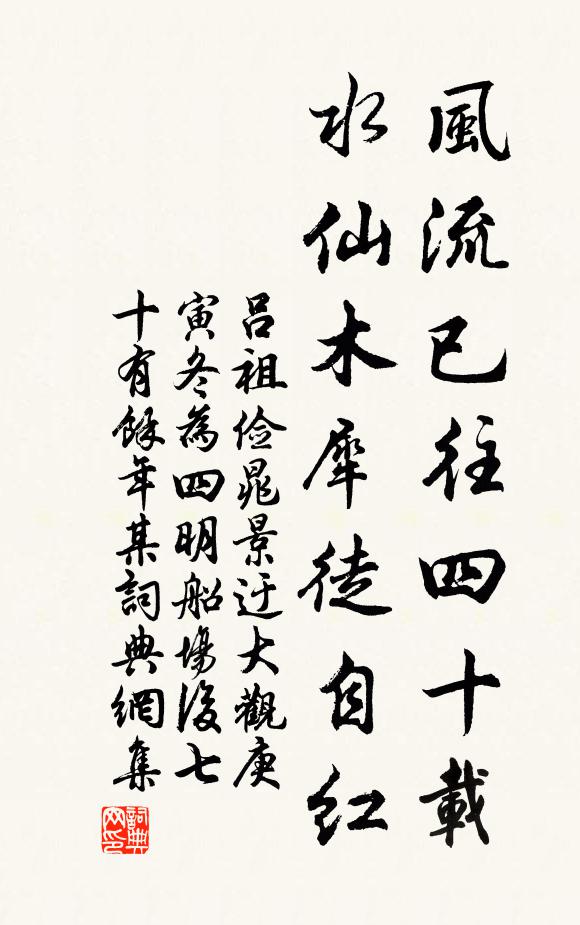 風流已往四十載
水仙木犀徒自紅
吕祖俭晁景迂大觀庚
寅冬為四明船場後七
十有餘年某詞典網集
詞典網印